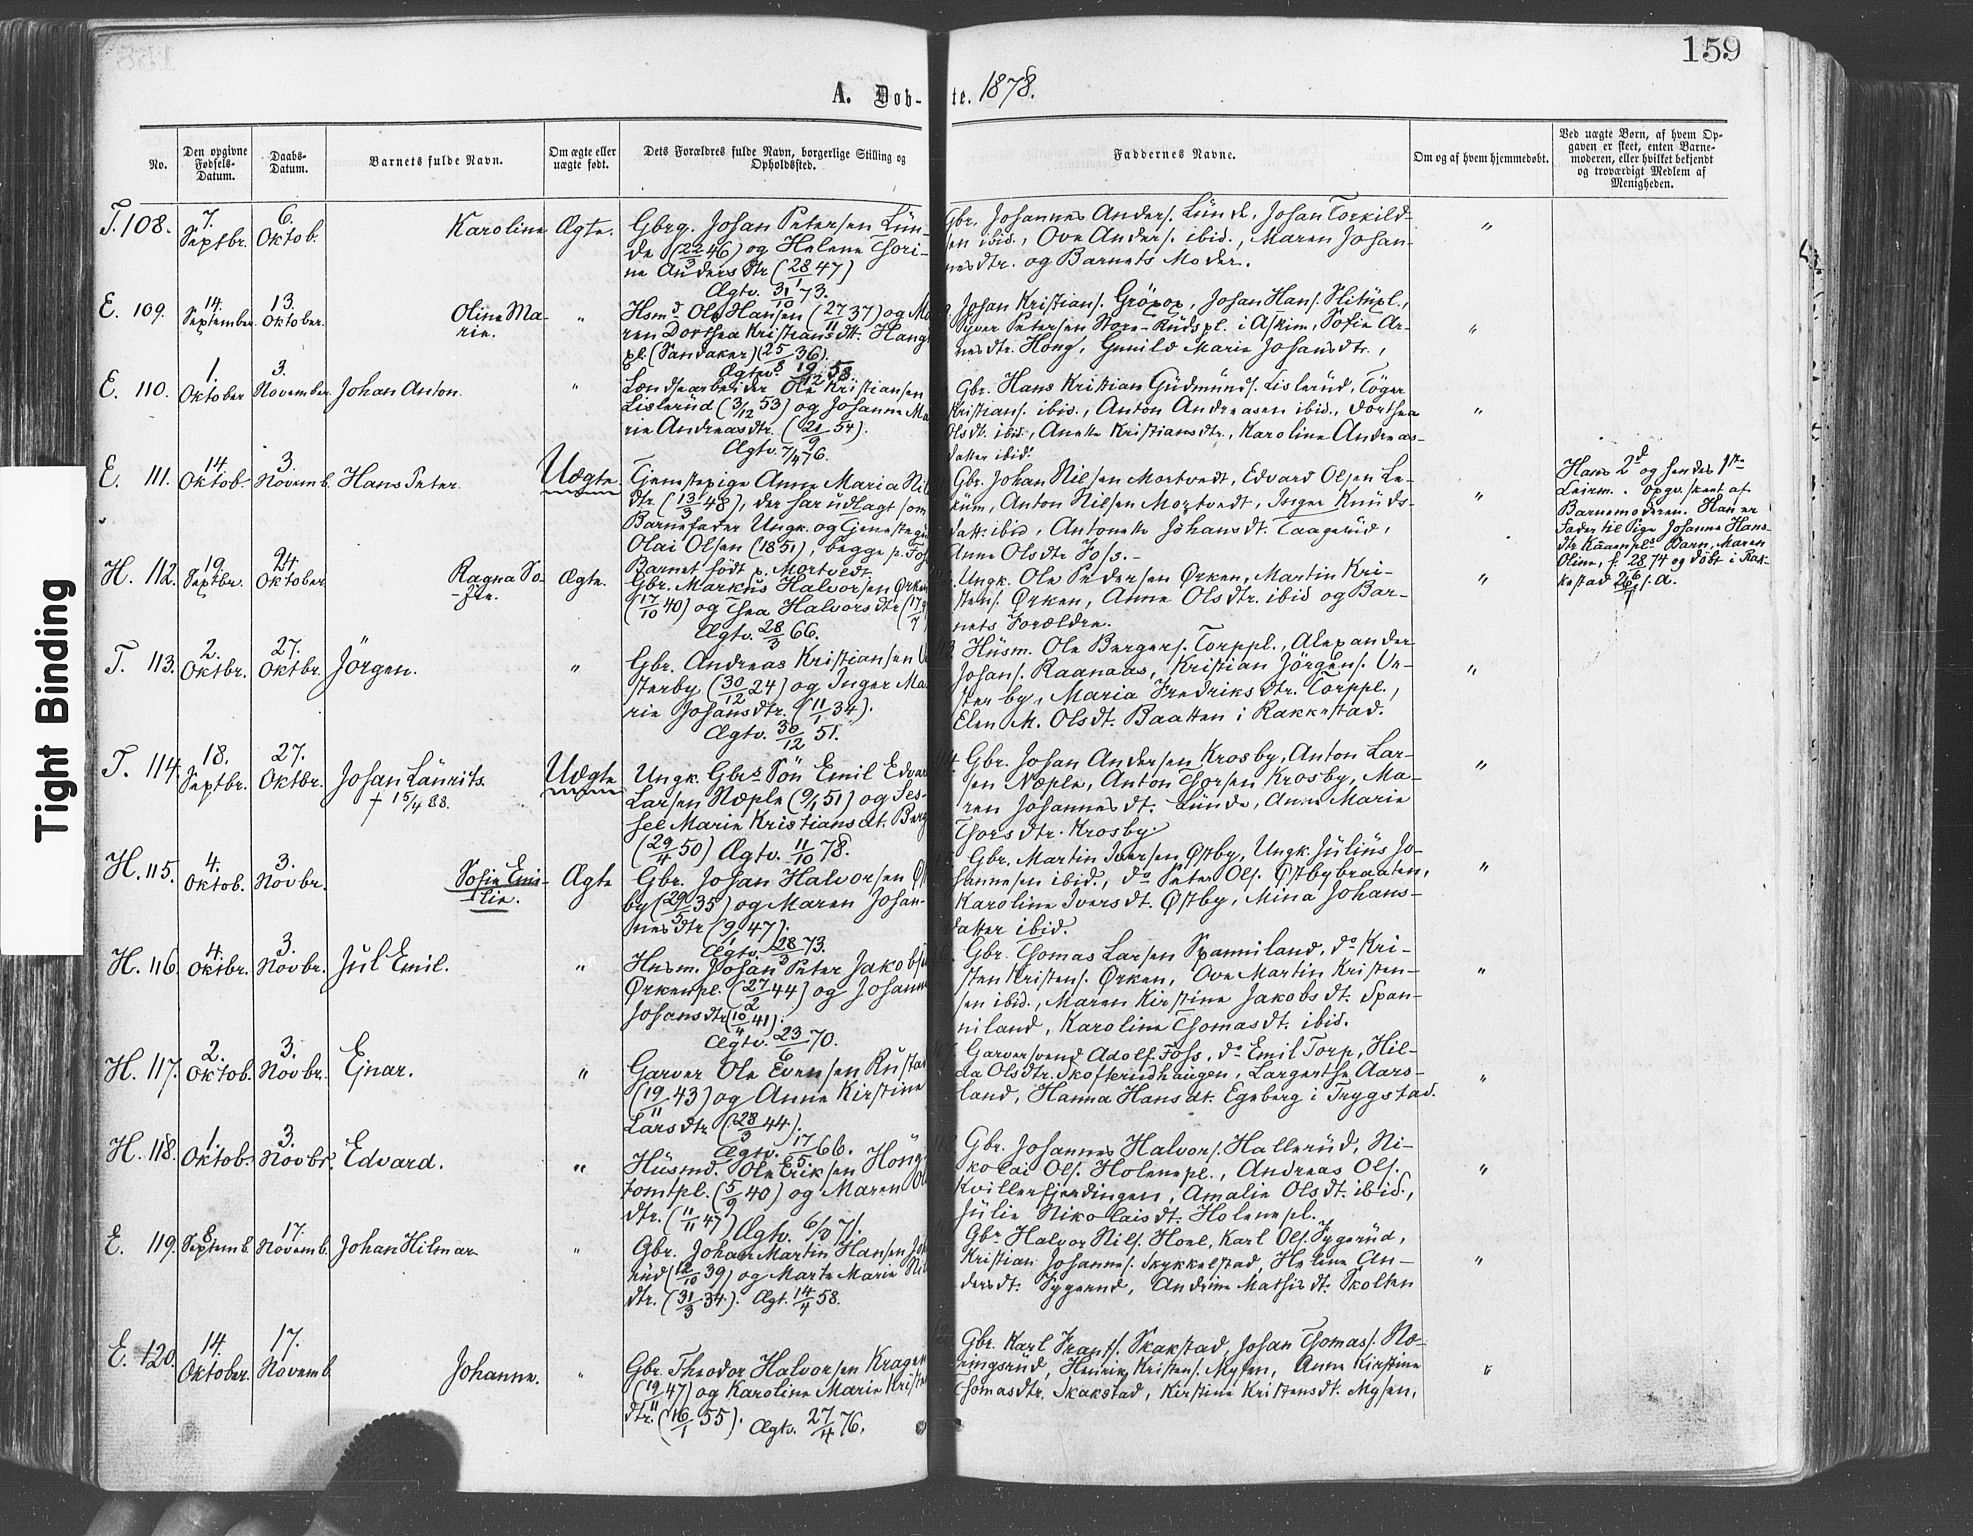 159
A. Døb-
te. 1878.
No.
Den opgivne Fødsels-Datum.
Daabs-Datum.
Barnets fulde Navn.
Om ægte eller uægte født.
Dets Forældres fulde Navn, borgerlige Stilling og Opholdssted.
Faddernes Navne.
Om og af hvem hjemmedøbt.
Ved uægte Børn, af hvem Op-
gaven er skeet, enten Barne-
moderen, eller hvilket bekjendt
og troværdigt Medlem af
Menigheden.
T. 108.
7. Septbr.
6. Oktob.
Karoline
Ægte.
Gbrg. Johan Petersen Lün-
de (22/3 46) og Helene Thori-
ne Anders dtr (28/1 47)
Ægtv. 31/10 73.
Gbr. Johannes Anders. Lünde, Johan Torkild-
sen ibid., Ove Anders. ibid., Maren Johan-
nesdtr. og Barnets Moder.
"
E. 109.
14. September
13. Oktober.
Oline Ma-
rie.
"
Hsmd. Ole Hansen (27/11 37) og Ma
ren Dorthea Kristiansdt. Hang
pl. (Sandaker) (25/8 36).
Ægtv. 19/12 58.
Johan Kristians. Gröxox, Johan Hans. Slitüpl.,
Syver Petersen Store-Rüdspl. i Askim, Sofie Ar-
nesdtr. Hong, Gunild Marie Johansdtr.,
"
E. 110.
1. Oktober
3. November
Johan Anton.
"
Lændsearbeider Ole Kristiansen
Lislerüd (3/12 53) og Johanne Ma
rie Andreasdtr. (21/9 54).
Ægtv. 7/4 76.
Gbr. Hans Kristian Güdmünds. Lislerüd, Töger
Kristians. ibid., Anton Andreasen ibid., Dorthea
Olsdt. ibid., Anette Kristiansdtr., Karoline Andreas-
datter ibid.
"
E. 111.
14. Oktob.
3. Novemb.
Hans Peter.
Uægte.
Tjenestepige Anne Maria Nil
dtr. (13/3 48), der har udlagt som
Barnefader Ungk. og Tjenestegü
Olai Olsen (1851), begge p. Fos
Barnet født p. Mortvedt
Gbr. Johan Nilsen Mortvedt, Edvard Olsen Le-
küm, Anton Nilsen Mortvedt, Inger Knüds-
datt. ibid, Antonette Johansdt. Taagerüd,
Anne Olsdtr Foss.
"
Hans 2d og hendes 1ste
Leirm. Opgv. skeet af
Barnemoderen. Han er
Fader til Pige Johanne Hans-
dtr Kaaenpls Barn, Maren
Oline, f. 28/6 74 og døbt i Rak-
kestad 26/7 s. a.
H. 112.
19. Septbr.
24. Oktober
Ragna So-
fie.
Ægte.
Gbr. Markus Halvorsen Ørken
(17/10 40) og Thea Halvorsdtr (17/7
Ægtv. 28/3 66.
Ungk. Ole Pedersen Ørken, Martin Kri-
stens. Ørken, Anne Olsdtr. ibid og Bar-
nets Forældre.
"
T. 113.
2. Oktbr.
27. Oktbr.
Jörgen.
"
Gbr. Andreas Kristiansen Ve
sterby (30/12 24) og Inger Ma
rie Johansdtr. (11/1 34).
Ægtv. 30/12 51.
Hüsm. Ole Bergers. Torppl., Alexander
Johans. Raanaas, Kristian Jörgens. Ve-
sterby, Maria Fredriksdtr. Torppl.,
Elen M. Olsdt. Baatten i Rakkestad.
"
T. 114.
18. Septbr.
27. Oktbr.
Johan Laürits.
† 15/4 88.
Uægte
Ungk. Gbrs Sön Emil Edvar
Larsen Næple (9/1 51) og Ses-
sel Marie Kristiansdt. Berg
(29/4 50) Ægtv. 11/10 78.
114 Gbr. Johan Andersen Krosby, Anton Lar-
sen Næple, Anton Thorsen Krosby, Ma-
ren Johannesdt. Lünde, Anne Marie
Thorsdtr. Krosby.
"
H. 115.
4. Oktob.
3. Novbr.
Sofie Emi-
lie.
Ægte
Gbr. Johan Halvorsen Øst
by (29/5 35) og Maren Johan-
nesdtr (9/1 47).
Ægtv. 28/3 73.
Gbr. Martin Iversen Østby, Ungk. Jülius Jo-
hannesen ibid., do Peter Ols. Østbybraaten,
Karoline Iversdt. Østby, Mina Johans-
datter ibid.
"
H. 116.
4. Oktbr.
3. Novbr.
Jül Emil.
"
Husm. Johan Peter Jakobsen
Ørkenpl. (27/2 44) og Johanne
Johansdtr (10/4 41).
Ægtv. 23/6 70.
Gbr. Thomas Larsen Spanniland, do Kri-
sten Kristens. Ørken, Ove Martin Kristen-
sen ibid., Maren Kirstine Jakobsdt. Span-
niland, Karoline Thomasdt. ibid.
"
H. 117.
2. Oktob.
3. Novbr.
Ejnar.
"
Garver Ole Evensen Rustad
(19/11 43) og Anne Kirstine
Larsdtr (28/3 44).
Ægtv. 17/5 66.
Garversvend Adolf Foss, do Emil Torp, Hil-
da Olsdtr. Skofterudhaugen, Largerthe Aars-
land, Hanna Hansdt. Egeberg i Trygstad.
"
H. 118.
1. Oktob.
3. Novbr.
Edvard.
"
Hüsmd. Ole Eriksen Höng-
tomtpl. (5/9 40) og Maren Ol
dtr. (11/11 47) Ægtv. 6/3 71.
Gbr. Johannes Halvors. Hallerüd, Ni-
kolai Ols. Holenepl., Andreas Ols.
Kvillerfjerdingen, Amalie Olsdt. ibid.,
Jülie Nikolaisdt. Holenepl.
"
E. 119.
8. Septemb.
17. Novemb.
Johan Hilmar
"
Gbr. Johan Martin Hansen
rüd (12/10 39) og Marte Marie Nil
dtr. (31/3 34). Ægt. 14/4 58.
Gbr. Halvor Nils. Hoel, Karl Ols. Sygerüd,
Kristian Johannes. Skykkelstad, Helene An-
dersdt. Sygerud, Andrine Mathisdt. Skolten
"
E. 120.
14. Oktober.
17. Novemb.
Johanne.
"
Gbr. Theodor Halvorsen Krager
(19/11 47) og Karoline Marie Kriste
dtr. (16/1 55). Ægtv. 27/4 76.
Gbr. Karl Frants. Skakstad, Johan Thomas. Næ-
ringsrüd, Henrik Kristens. Mysen, Anne Kirstine
Thomasdtr. Skakstad, Kirstine Kristensdt. Mysen,
"
Tight Binding